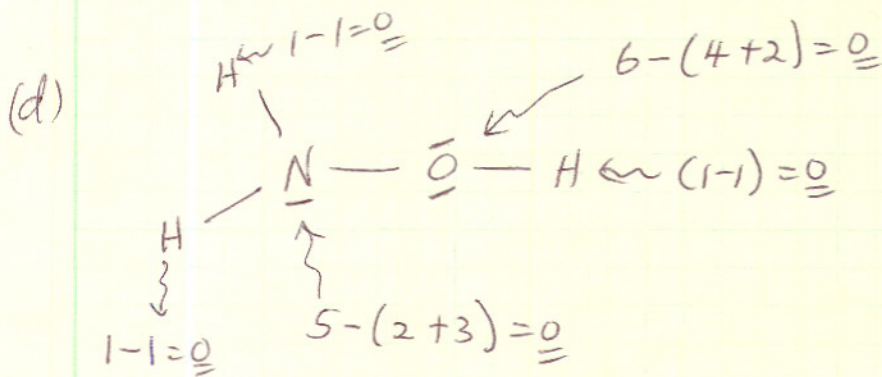 H 1-1=0
6-(4+2)=0
(d)
N — O — H (1-1)=0
H
1-1=0
5-(2+3)=0